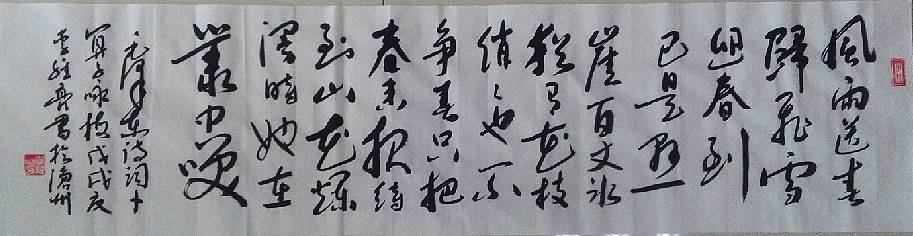 風雨送春
歸飛雪
迎春到
已是懸
崖百丈冰
猶有花枝
俏〻也不
争春只把
春来报待
到山花爛
漫時她在
叢中笑
毛澤東诗词卜
算子咏梅戊戌夏
書於滄州